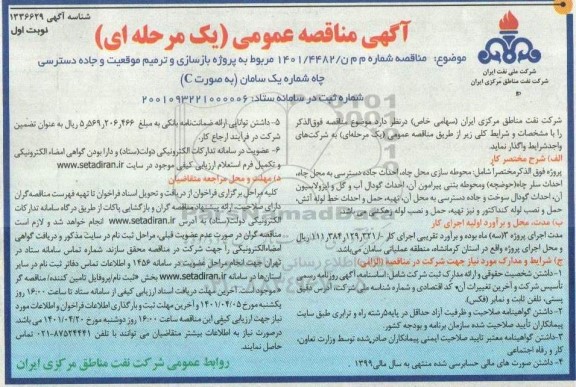 شناسه آگهی ۱۳۳۶۶۲۹
نوبت اول
آگهی مناقصه عمومی (یک مرحله ای)
شرکت ملی نفت ایران
شرکت نفت مناطق مرکزی ایران
موضوع: مناقصه شماره م م ن/۱۴۰۱/۴۴۸۲ مربوط به پروژه بازسازی و ترمیم موقعیت و جاده دسترسی
چاه شماره یک سامان (به صورت C)
شماره ثبت در سامانه ستاد: ۲۰۰۱۰۹۳۲۲۱۰۰۰۰۰۶
شرکت نفت مناطق مرکزی ایران (سهامی خاص) درنظر دارد موضوع مناقصه فوق‌الذکر
را با مشخصات و شرایط کلی زیر از طریق مناقصه عمومی (یک مرحله‌ای) به شرکت‌های
واجدشرایط واگذار نماید.
الف) شرح مختصر کار
پروژه فوق الذکر مختصراً شامل: محوطه سازی محل چاه، احداث جاده دسترسی به محل چاه،
احداث سلر چاه(حوضچه) ومحوطه بتنی پیرامون آن، احداث گودال آب و گل و ایزولاسیون
آن، احداث گودال سوخت و جاده دسترسی به محل آن، تهیه، حمل و احداث خط لوله آتش،
حمل و نصب لوله کنداکتور و نیز تهیه، حمل و نصب لوله روغنی می‌باشد.
ب) مدت، محل و برآورد اولیه اجرای کار
مدت اجرای پروژه ۳(سه) ماه بوده و برآورد تقریبی اجرای کار ۱۱۱,۳۸۴,۱۲۹,۳۲۱/- ریال
و محل اجرای پروژه واقع در استان کرمانشاه، منطقه عملیاتی سامان می‌باشد.
ج) شرایط و مدارک مورد نیاز جهت شرکت در مناقصه (الزامی)
۱-داشتن شخصیت حقوقی و ارائه مدارک ثبت شرکت شامل اساسنامه، آگهی روزنامه رسمی
تأسیس شرکت و آخرین تغییرات آن،کد اقتصادی و شماره شناسه ملی شرکت، آدرس، کد
پستی، تلفن ثابت و نمابر (فکس).
۲- داشتن گواهینامه صلاحیت و ظرفیت آزاد حداقل در پایه۵رشته راه و ترابری طبق سایت
پیمانکاران تأیید صلاحیت شده سازمان برنامه و بودجه کشور.
۳- داشتن گواهینامه معتبر تایید صلاحیت ایمنی پیمانکاران صادرشده توسط وزارت تعاون،
کار و رفاه اجتماعی
۴- داشتن صورت های مالی حسابرسی شده منتهی به سال مالی۱۳۹۹.
۵- داشتن توانایی ارائه ضمانت‌نامه بانکی به مبلغ ۵,۵۶۹,۲۰۶,۴۶۶ ریال به عنوان تضمین
شرکت در فرآیند ارجاع کار.
۶- عضویت در سامانه تدارکات الکترونیکی دولت(ستاد) و دارا بودن گواهی امضاء الکترونیکی
و تکمیل فرم استعلام ارزیابی کیفی موجود در سایت www.setadiran.ir
د) مهلت و محل مراجعه متقاضیان
کلیه مراحل برگزاری فراخوان از دریافت و تحویل اسناد فراخوان تا تهیه فهرست مناقصه‌گران
دارای صلاحیت، ارائه پیشنهاد مناقصه گران و بازگشایی پاکات از طریق درگاه سامانه تدارکات
الکترونیکی دولت(ستاد) به آدرس www.setadiran.ir انجام خواهد شد و لازم است
مناقصه گران در صورت عدم عضویت قبلی، مراحل ثبت نام در سایت مذکور و دریافت گواهی
امضاءالکترونیکی را جهت شرکت در مناقصه محقق سازند. شماره تماس سامانه ستاد در
تهران جهت انجام مراحل عضویت در سامانه ۱۴۵۶ و اطلاعات تماس دفاتر ثبت نام در سایر
استان‌ها در سامانه www.setadiran.ir بخش «ثبت نام/پروفایل تامین کننده/ مناقصه گر»
موجود است. مهلت دریافت اسناد ارزیابی کیفی از سامانه ستاد تا ساعت ۱۶:۰۰ روز
یکشنبه مورخ ۱۴۰۱/۰۴/۰۵ و آخرین مهلت ثبت و بارگذاری اطلاعات فراخوان و اطلاعات مورد
نیاز جهت ارزیابی کیفی این مناقصه ساعت ۱۶:۰۰ روز دوشنبه مورخ ۱۴۰۱/۰۴/۲۰ می باشد.
درصورت نیاز به اطلاعات بیشتر متقاضیان می توانند با تلفن ۸۷۵۲۴۴۴۱-۰۲۱ تماس
حاصل نمایند.
روابط عمومی شرکت نفت مناطق مرکزی ایران